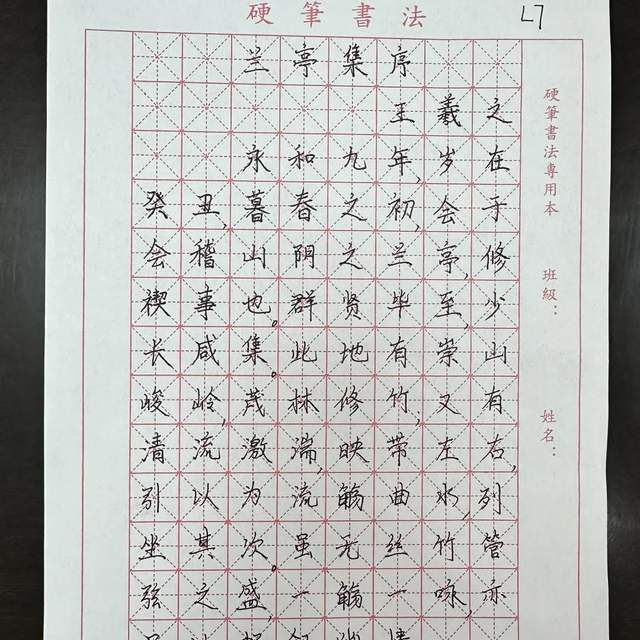 硬筆書法
L7
兰亭集序
王羲之
永和九年,岁在
癸丑,暮春之初,会于
会稽山阴之兰亭,修
禊事也。群贤毕至,少
长咸集。此地有崇山
峻岭,茂林修竹,又有
清流激湍,映带左右,
引以为流觞曲水,列
坐其次。虽无丝竹管
弦之盛,一觞一咏,亦
硬筆書法專用本
班級：
姓名：